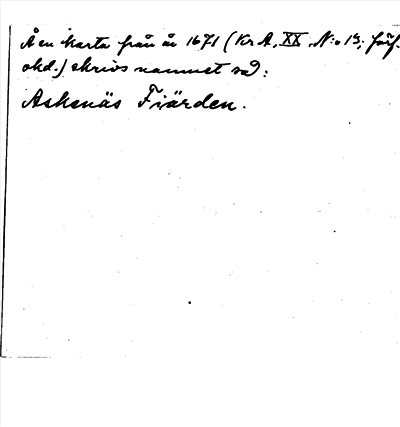 Å en karta från år 1671 (Kr A, XX, N:o 13; förf.
okd.) skrivs namnet så:
Askenäs Fiärden.